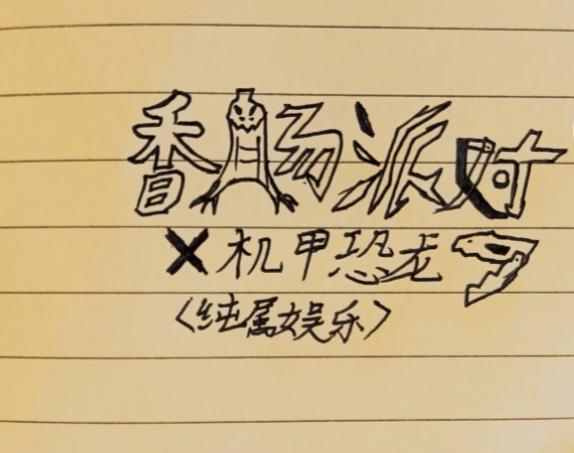 香肠派对
×机甲恐龙
<纯属娱乐>